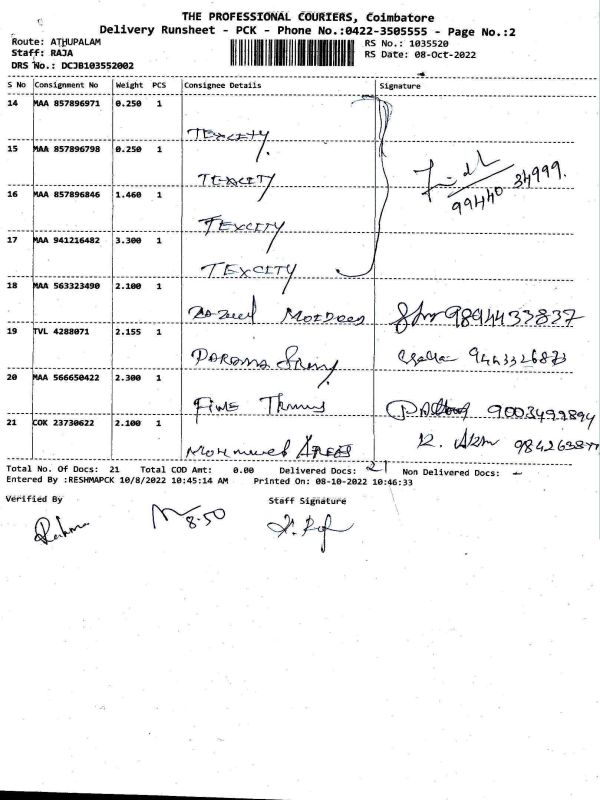 THE PROFESSIONAL COURIERS, Coimbatore
Delivery Runsheet - PCK - Phone No.:0422-3505555 - Page No.:2
Route: ATHUPALAM
Staff: RAJA
DRS No.: DCJB103552002
RS No.: 1035520
RS Date: 08-Oct-2022
S No Consignment No Weight PCS Consignee Details Signature
14 MAA 857896971 0.250 1
TEXCITY
15 MAA 857896798 0.250 1
TEXCITY
99440 34999.
16 MAA 857896846 1.460 1
TEXCITY
17 MAA 941216482 3.300 1
TEXCITY
18 MAA 563323490 2.100 1
9894433837
19 TVL 4288071 2.155 1
9443326873
20 MAA 566650422 2.300 1
9003499894
21 COK 23730622 2.100 1
Total No. Of Docs: 21 Total COD Amt: 0.00 Delivered Docs: 21 Non Delivered Docs: -
Entered By :RESHMAPCK 10/8/2022 10:45:14 AM Printed On: 08-10-2022 10:46:33
Verified By Staff Signature
8.50